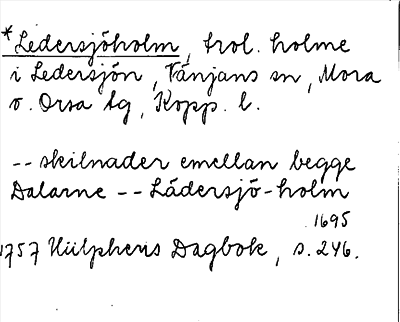 *Ledersjöholm, trol. holme
i Ledersjön, Vänjans sn, Mora
o. Orsa tg, Kopp. l.
-- skilnader emellan begge
Dalarne -- Lädersjö-holm
1695
1757 Hülphers Dagbok, s. 246.